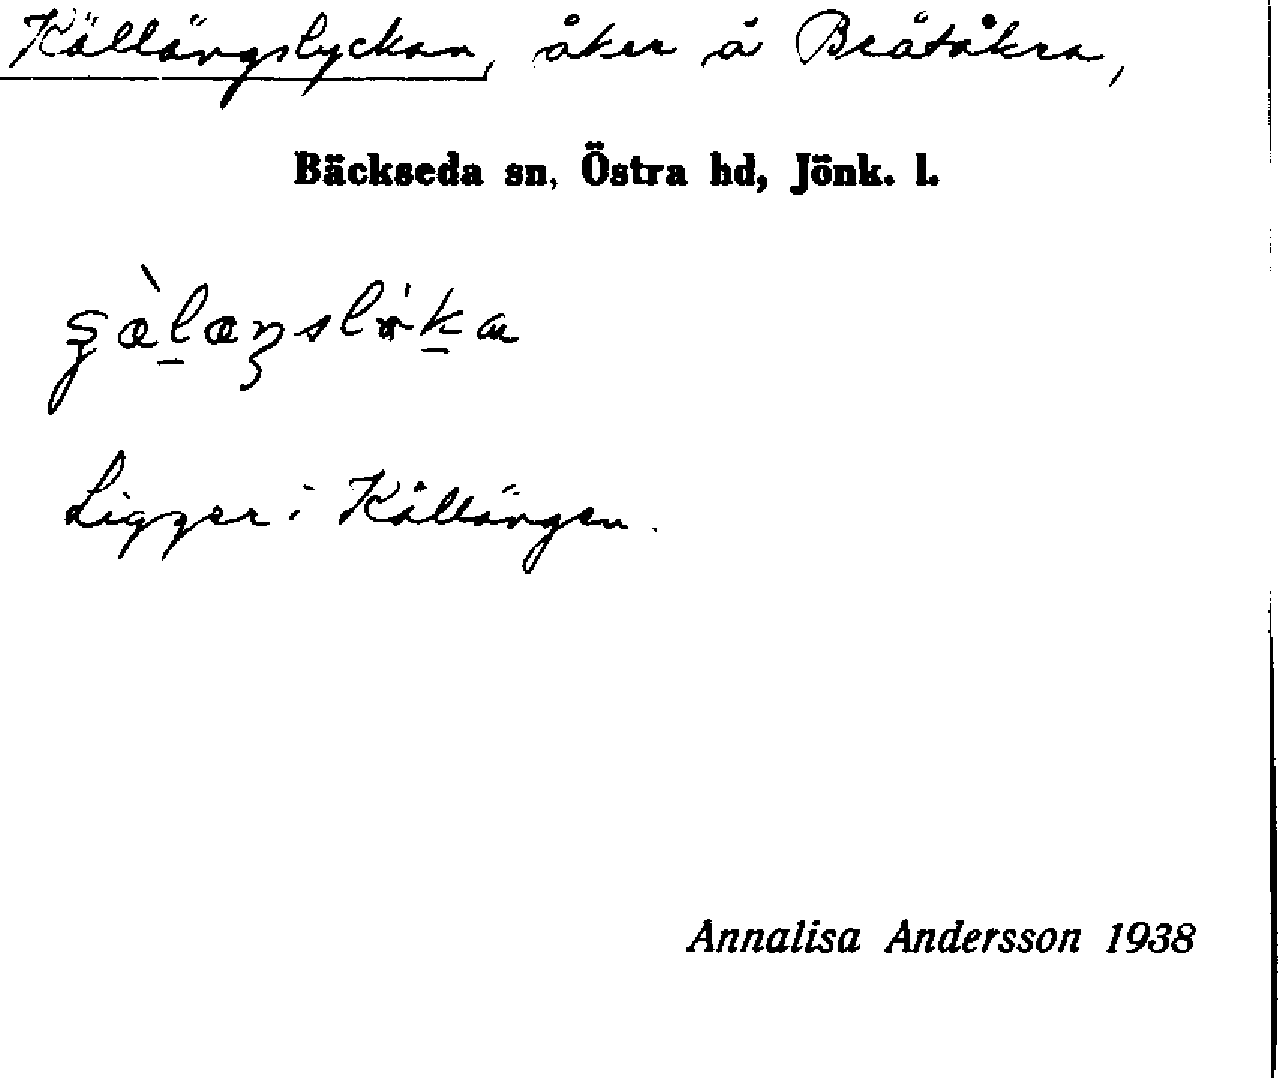 Källängslyckan, åker å Bråtåkra,
Bäckseda sn, Östra hd, Jönk. l.
Ligger i Källängen.
Annalisa Andersson 1938